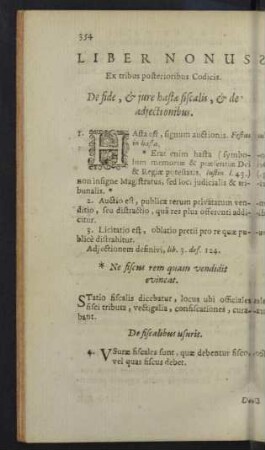 354
LIBER NONUS
Ex tribus posterioribus Codicis.
De fide, & jure hastæ fiscalis, & de
adjectionibus.
1. HAsta est, signum auctionis. Festus
in hasta,
* Erat enim hasta (symbo-
lum memoriæ & præsentiæ Dei
& Regiæ potestatis. Justin. l. 43.)
non insigne Magistratus, sed loci judicialis & tri-
bunalis. *
2. Auctio est, publica rerum privatarum ven-
ditio, seu distractio, quâ res plus offerenti addi-
citur.
3. Licitatio est, oblatio pretii pro re quæ pu-
blicè distrahitur.
Adjectionem definivi, lib. 3. def. 124.
* Ne fiscus rem quam vendidit
evincat.
STatio fiscalis dicebatur, locus ubi officiales
fisci tributa, vectigalia, confiscationes, cura-
bant.
De fiscalibus usuris.
4. VSuræ fiscales sunt, quæ debentur fisco,
vel quas fiscus debet.